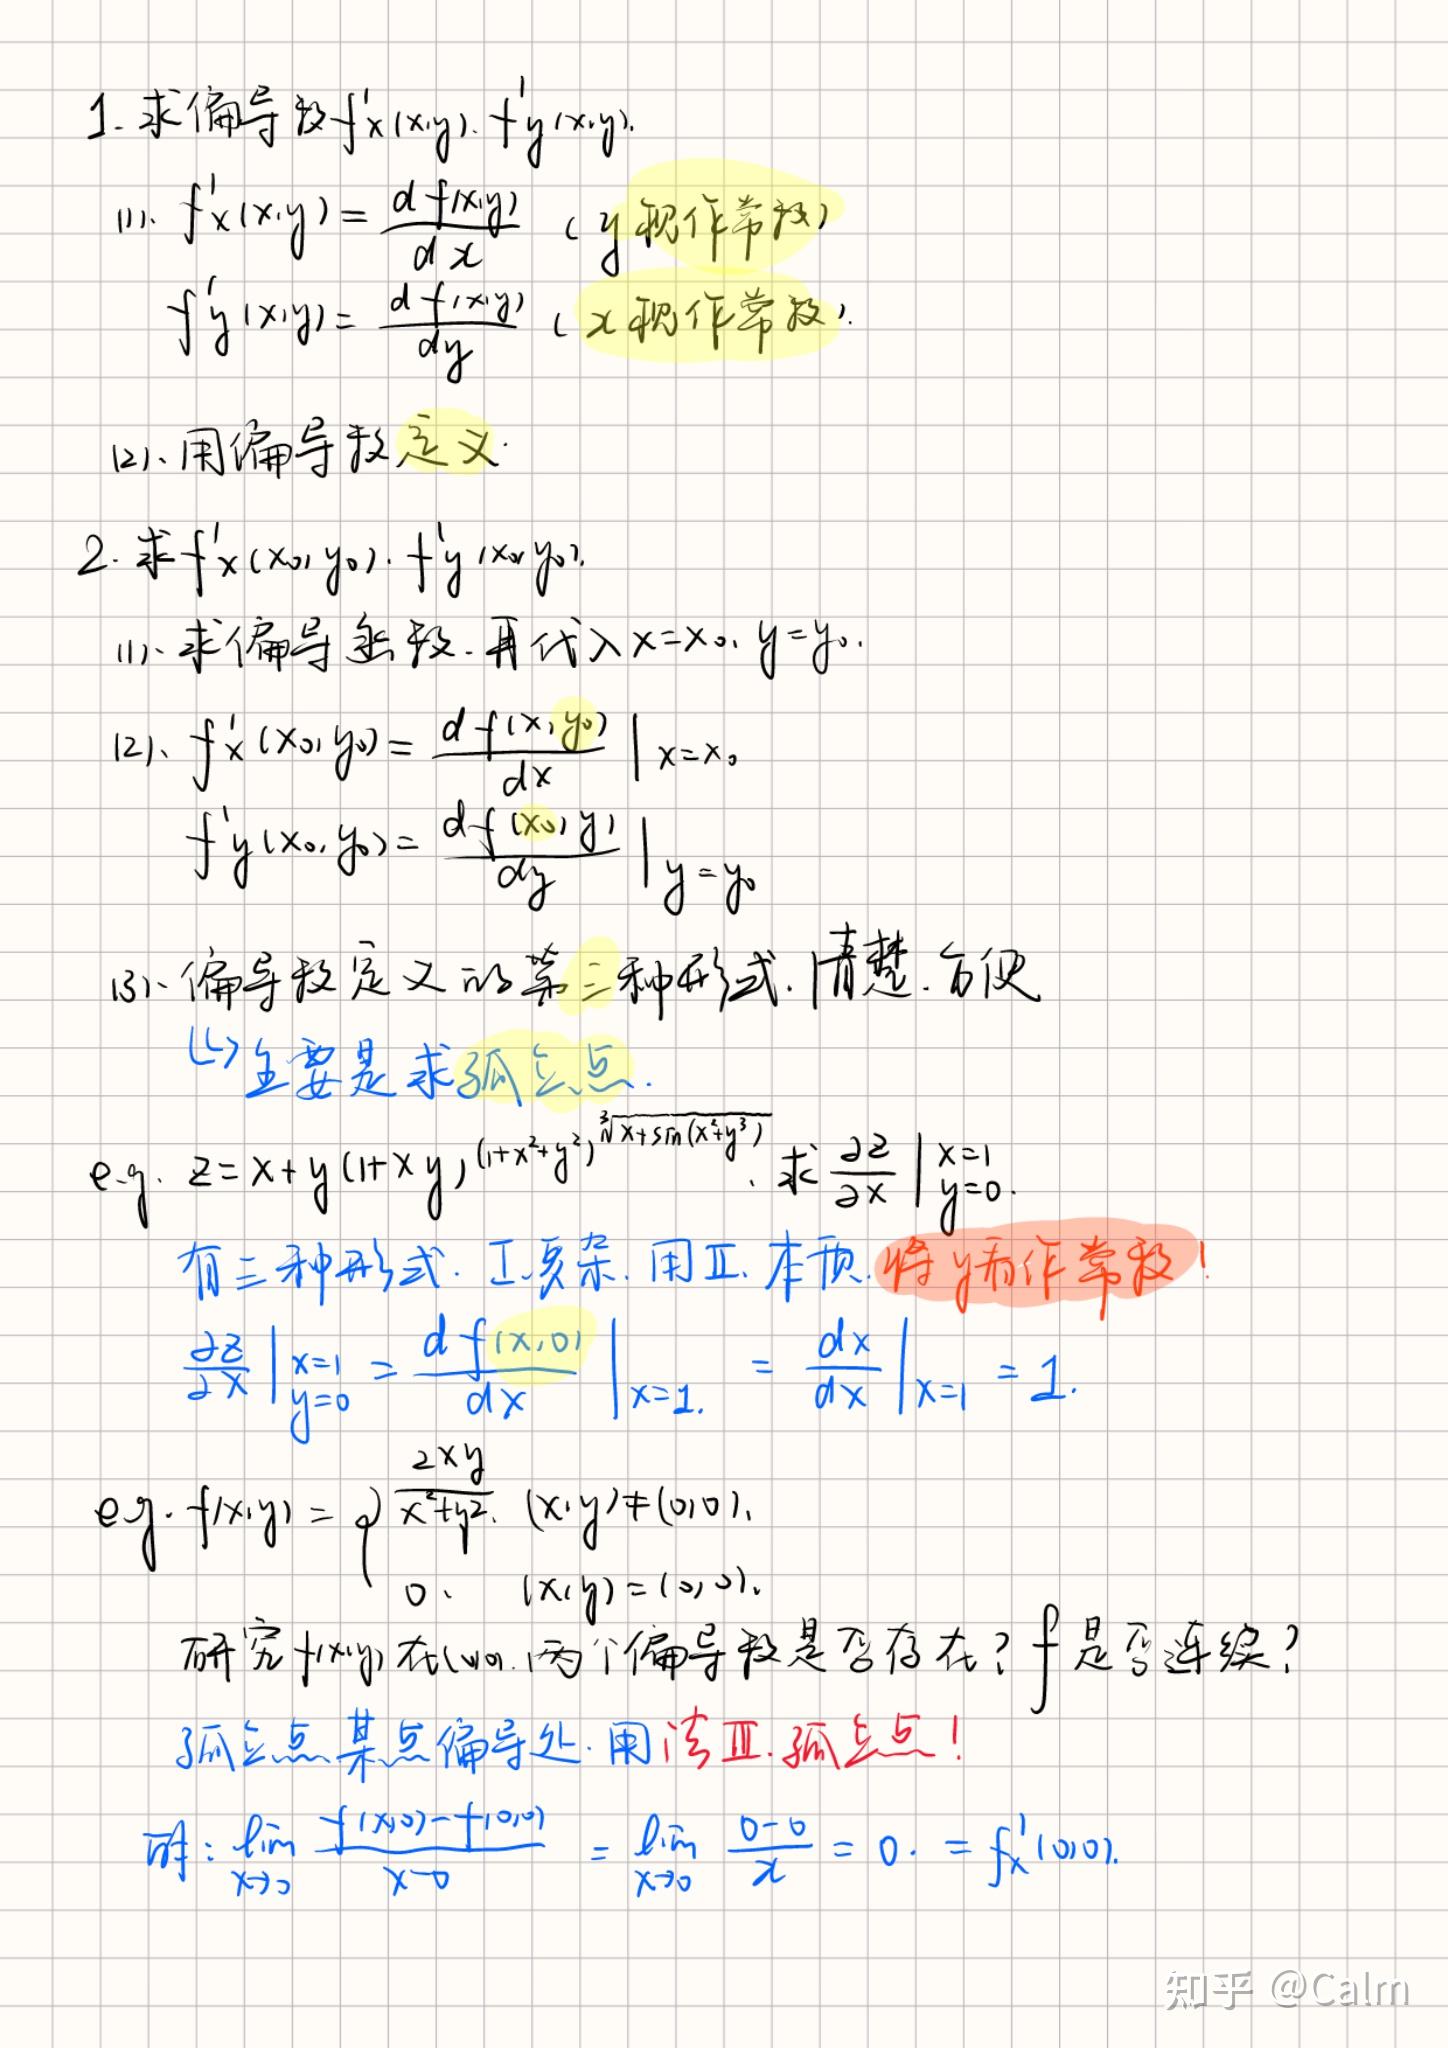 1. 求偏导数f'x(x,y). f'y(x,y).
(1). f'x(x,y) = d f(x,y) / dx (y视作常数)
f'y(x,y) = d f(x,y) / dy (x视作常数).
(2). 用偏导数定义.
2. 求f'x(x₀, y₀). f'y(x₀, y₀).
(1). 求偏导函数. 再代入x=x₀, y=y₀.
(2). f'x(x₀, y₀) = d f(x, y₀) / dx | x=x₀
f'y(x₀, y₀) = d f(x₀, y) / dy | y=y₀
(3). 偏导数定义的第三种形式. 清楚. 方便
↳ 主要是求孤立点.
e.g. z = x + y(1+xy)^(1+x²+y²)^∛(x+sin(x²+y³)). 求 ∂z/∂x | x=1 y=0.
有三种形式. Ⅰ复杂. 用Ⅱ. 本质. 将y看作常数!
∂z/∂x | x=1 y=0 = d f(x,0) / dx | x=1. = dx/dx | x=1 = 1.
e.g. f(x,y) = { 2xy / x²+y². (x,y)≠(0,0).
0. (x,y)=(0,0).
研究f(x,y)在(0,0). 两个偏导数是否存在? f是否连续?
孤立点某点偏导处. 用法Ⅲ. 孤立点!
解: lim x→0 f(x,0)-f(0,0) / x-0 = lim x→0 0-0 / x = 0. = f'x(0,0).
知乎 @Calm